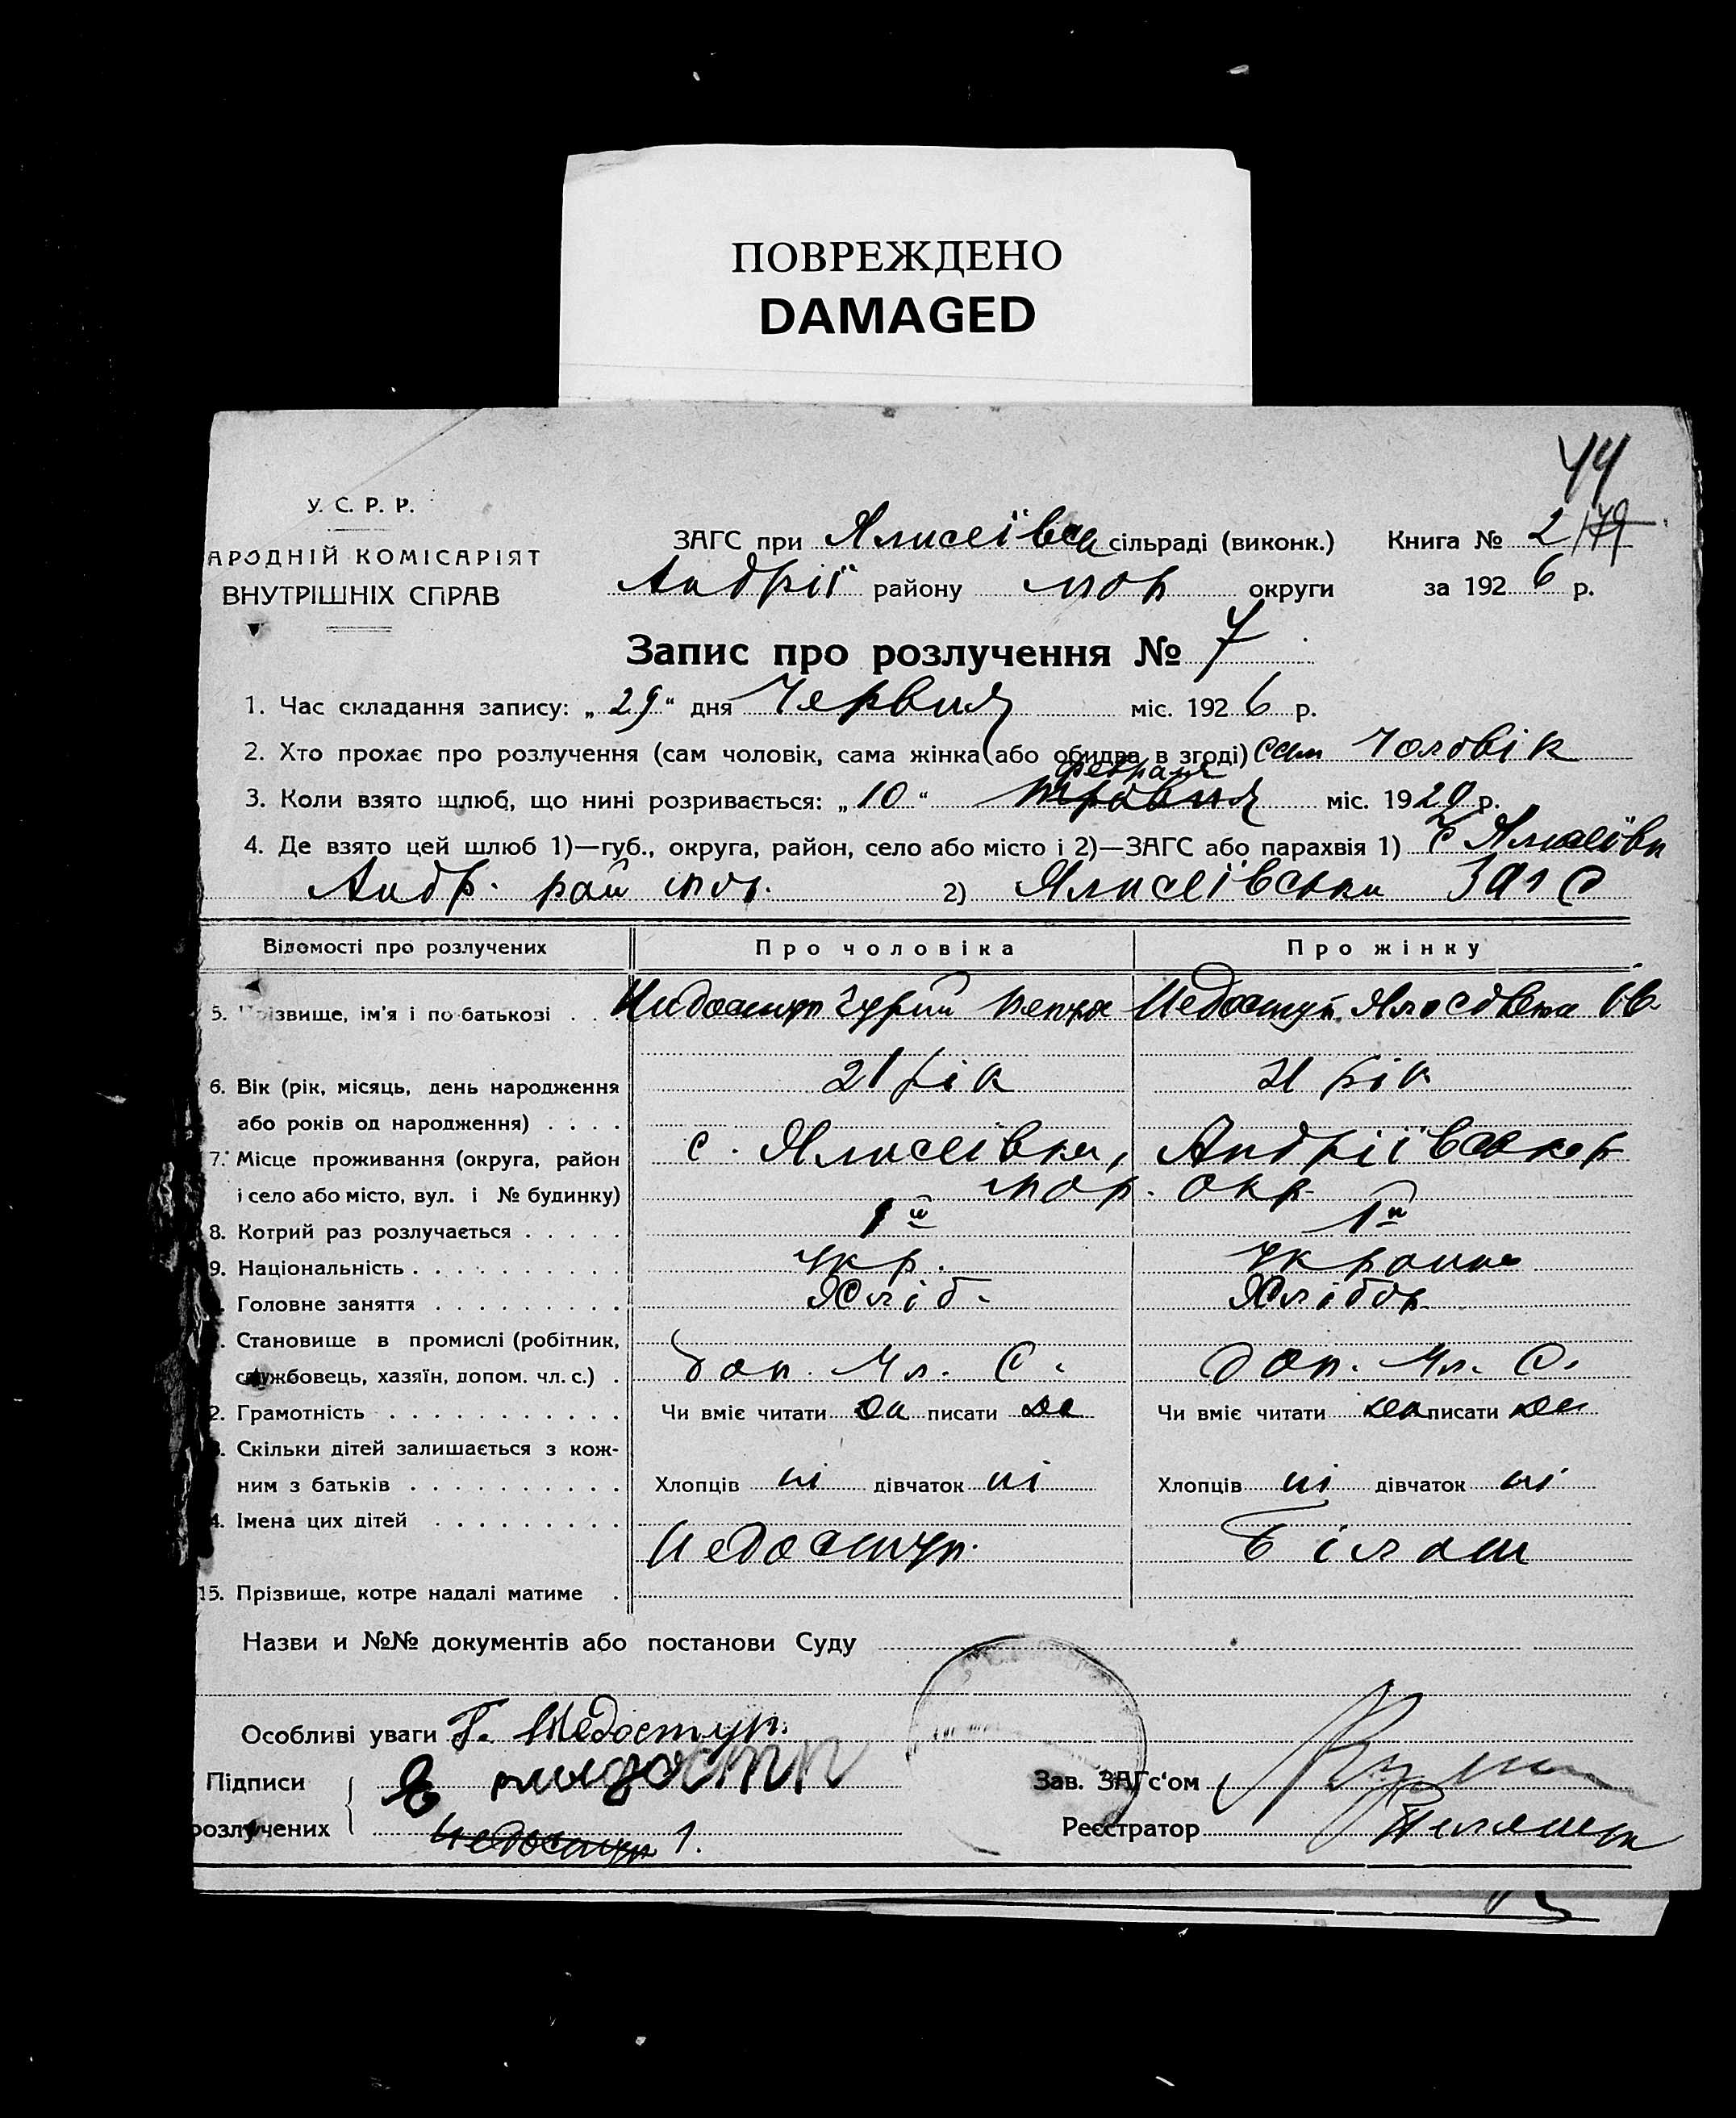 ПОВРЕЖДЕНО
DAMAGED
44
У. С. Р. Р.
АРОДНІЙ КОМІСАРІЯТ
ВНУТРІШНІХ СПРАВ
ЗАГС при сільраді (виконк.) Книга № 2
Андрії району округи за 1926 р.
Запис про розлучення № 7
1. Час складання запису: „29“ дня Червня міс. 1926 р.
2. Хто прохає про розлучення (сам чоловік, сама жінка (або обидва в згоді) сам Чоловік
февраля
3. Коли взято шлюб, що нині розривається: „10“ травня міс. 19 р.
4. Де взято цей шлюб 1)—губ., округа, район, село або місто і 2)—ЗАГС або парахвія 1) с
Андр. рай 2) Загс
Відомості про розлучених Про чоловіка Про жінку
5. різвище, ім'я і по-батькові . . Недоступ Петро Недоступ
6. Вік (рік, місяць, день народження 21 рік 21 рік
або років од народження) . . . .
7. Місце проживання (округа, район с. Андріївськ р
і село або місто, вул. і № будинку) окр.
8. Котрий раз розлучається . . . . . 1й 1й
9. Національність . . . . . . . . . . Укр. Украинс
Головне заняття . . . . . . . . . Хліб. Хлібор
Становище в промислі (робітник,
службовець, хазяїн, допом. чл. с.) . доп. Чл. С. доп. Чл. С.
2. Грамотність . . . . . . . . . . . Чи вміє читати да писати да Чи вміє читати да писати да
Скільки дітей залишається з кож-
ним з батьків . . . . . . . . . . Хлопців ні дівчаток ні Хлопців ні дівчаток ні
4. Імена цих дітей . . . . . . . . .
Недоступ. Білаш
15. Прізвище, котре надалі матиме .
Назви и №№ документів або постанови Суду
Особливі уваги Г. Недоступ.
Підписи Зав. ЗАГс'ом
розлучених Недоступ 1. Реєстратор